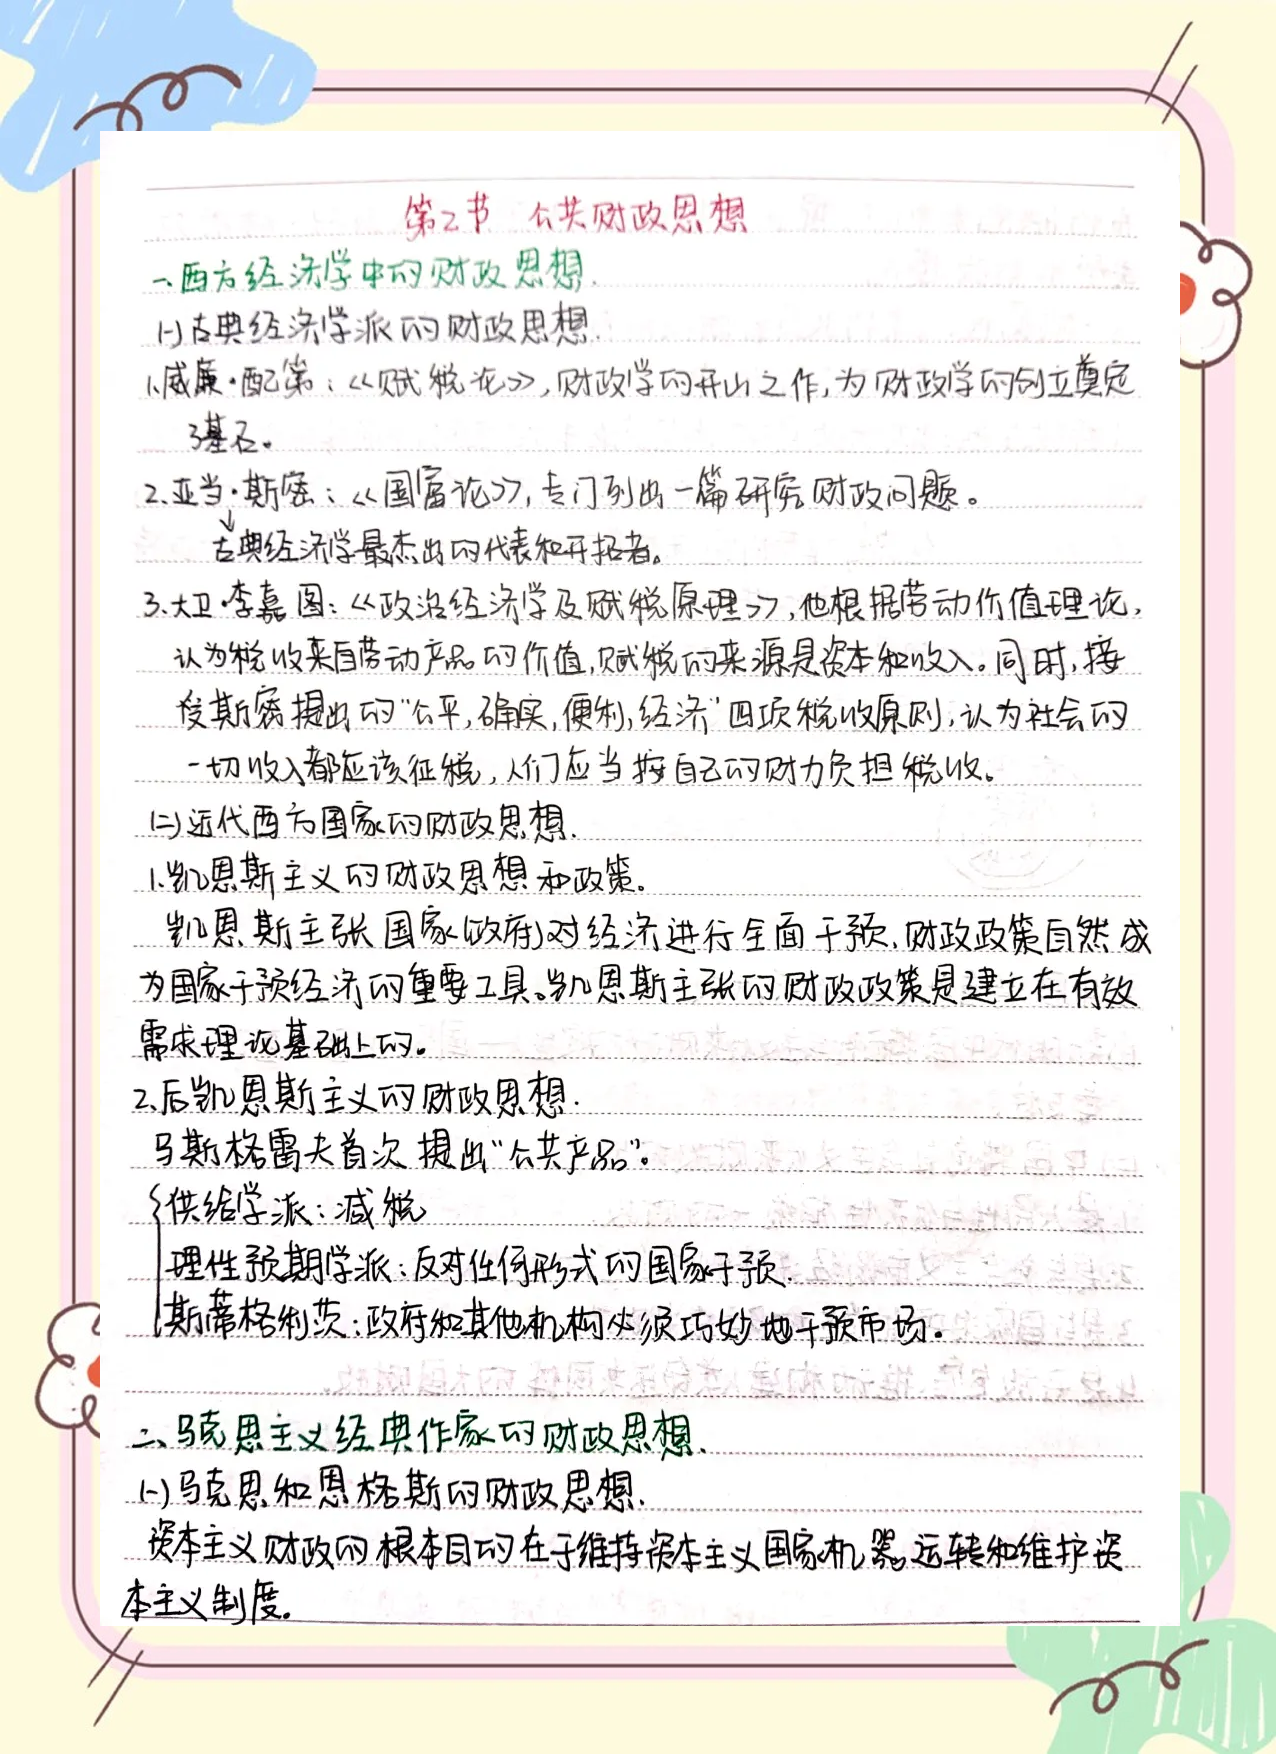 第2节 公共财政思想
一、西方经济学中的财政思想.
(一)古典经济学派的财政思想.
1.威廉·配第：《赋税论》,财政学的开山之作,为财政学的创立奠定
了基石。
2.亚当·斯密：《国富论》,专门列出一篇研究财政问题。
↓
古典经济学最杰出的代表和开拓者。
3.大卫·李嘉图：《政治经济学及赋税原理》,他根据劳动价值理论,
认为税收来自劳动产品的价值,赋税的来源是资本和收入。同时,接
受斯密提出的"公平,确实,便利,经济"四项税收原则,认为社会的
一切收入都应该征税,人们应当按自己的财力负担税收。
(二)近代西方国家的财政思想.
1.凯恩斯主义的财政思想和政策。
凯恩斯主张国家(政府)对经济进行全面干预,财政政策自然成
为国家干预经济的重要工具。凯恩斯主张的财政政策是建立在有效
需求理论基础上的。
2.后凯恩斯主义的财政思想.
马斯格雷夫首次提出"公共产品"。
供给学派：减税
理性预期学派：反对任何形式的国家干预.
斯蒂格利茨：政府和其他机构必须巧妙地干预市场。
二、马克思主义经典作家的财政思想.
(一)马克思和恩格斯的财政思想.
资本主义财政的根本目的在于维持资本主义国家机器运转和维护资
本主义制度。